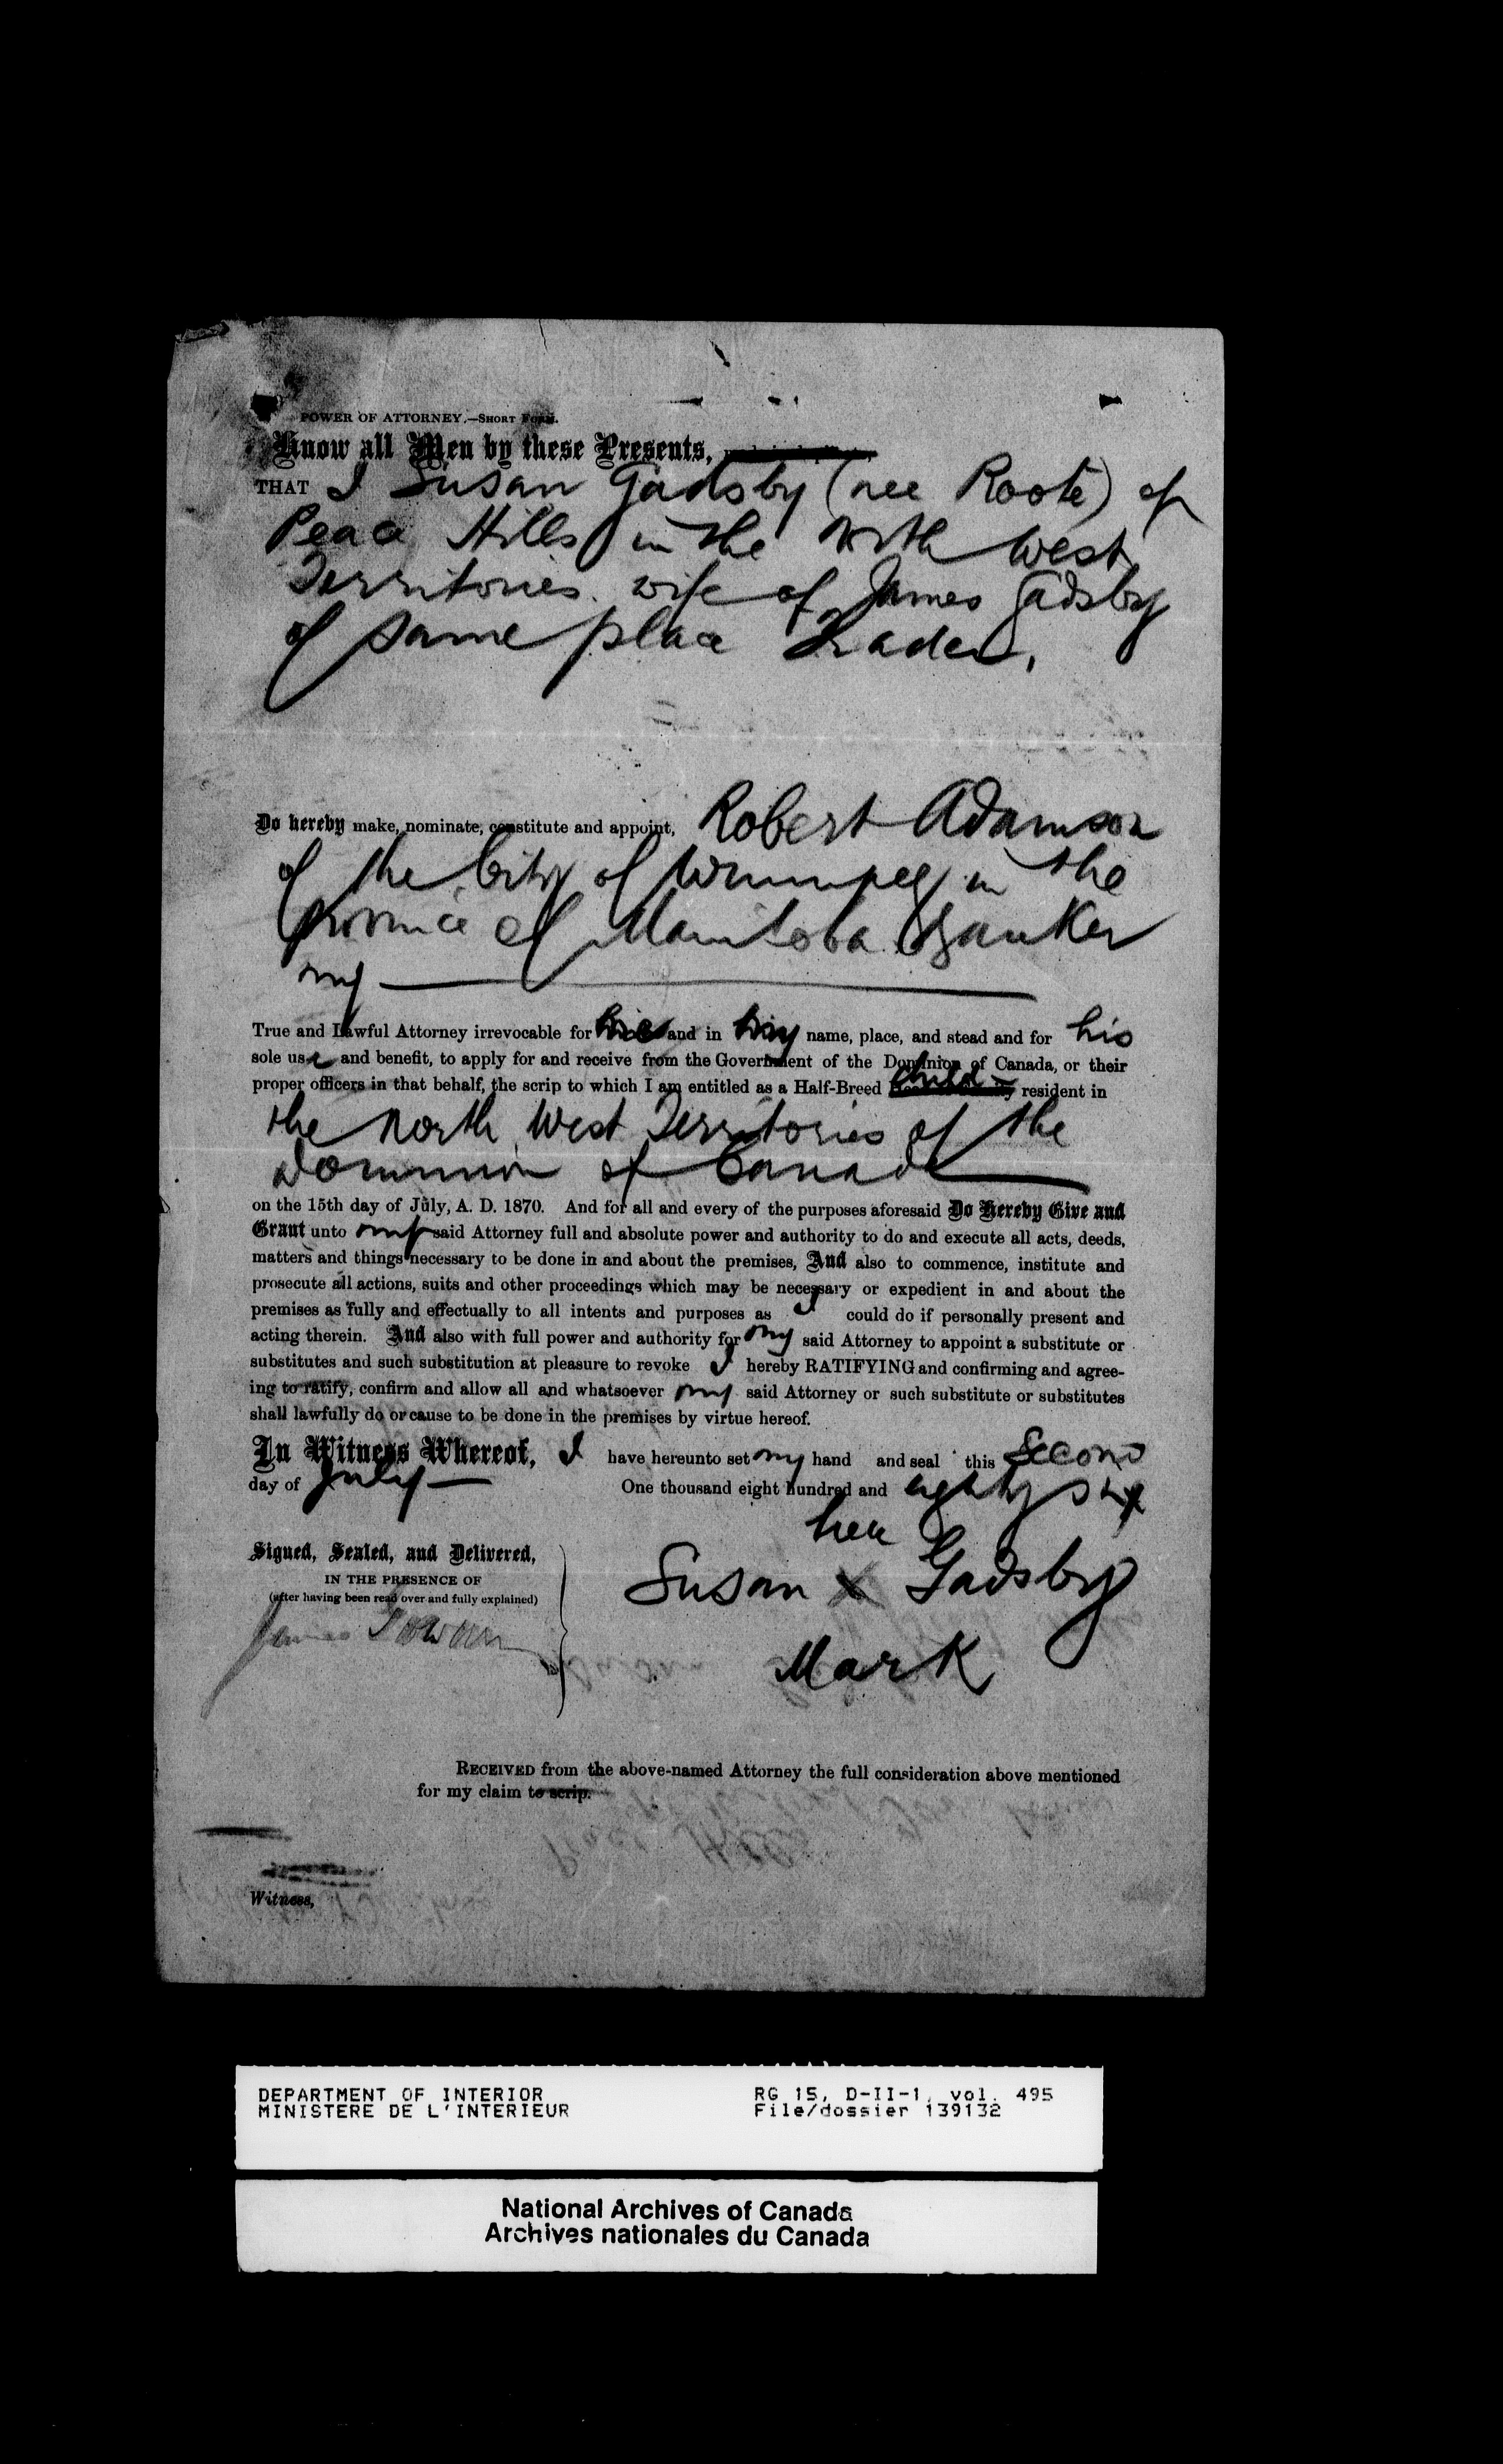 POWER OF ATTORNEY.—SHORT FORM.
Know all Men by these Presents,
THAT I Susan Gadsby (nee Roote) of
Peace Hills in the North West
Territories. wife of James Gadsby
of same place Trader.
Do hereby make, nominate, constitute and appoint, Robert Adamson
of the City of Winnipeg in the
Province of Manitoba Banker
my
True and Lawful Attorney irrevocable for and in my name, place, and stead and for his
sole use and benefit, to apply for and receive from the Government of the Dominion of Canada, or their
proper officers in that behalf, the scrip to which I am entitled as a Half-Breed child resident in
the North West Territories of the
Dominion of Canada
on the 15th day of July, A. D. 1870. And for all and every of the purposes aforesaid Do Hereby Give and
Grant unto my said Attorney full and absolute power and authority to do and execute all acts, deeds,
matters and things necessary to be done in and about the premises, And also to commence, institute and
prosecute all actions, suits and other proceedings which may be necessary or expedient in and about the
premises as fully and effectually to all intents and purposes as I could do if personally present and
acting therein. And also with full power and authority for my said Attorney to appoint a substitute or
substitutes and such substitution at pleasure to revoke I hereby RATIFYING and confirming and agree-
ing to ratify, confirm and allow all and whatsoever my said Attorney or such substitute or substitutes
shall lawfully do or cause to be done in the premises by virtue hereof.
In Witness Whereof, I have hereunto set my hand and seal this Second
day of July One thousand eight hundred and eighty six
Signed, Sealed, and Delivered,
IN THE PRESENCE OF
(after having been read over and fully explained)
James
her
Susan X Gadsby
Mark
RECEIVED from the above-named Attorney the full consideration above mentioned
for my claim to scrip.
Witness,
DEPARTMENT OF INTERIOR RG 15, D-II-1, vol. 495
MINISTERE DE L'INTERIEUR File/dossier 139132
National Archives of Canada
Archives nationales du Canada